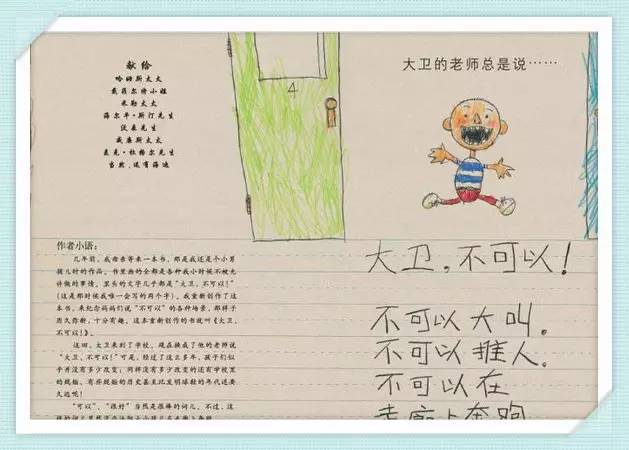 献给
哈姆斯太太
戴菲尔特小姐
米勒太太
海尔平·斯汀先生
沃泰先生
威廉斯太太
麦克·拉格尔先生
当然,还有海迪
4
大卫的老师总是说……
作者小语：
几年前，我母亲寄来一本书，那是我还是个小男
孩儿时的作品。书里画的全都是各种我小时候不被允
许做的事情，里头的文字几乎都是“大卫，不可以！”
（这是那时候我唯一会写的两个字）。我重新创作了这
本书，来纪念妈妈们说“不可以”的各种场景，那样子
历久弥新，十分有趣。这本重新创作的书就叫《大卫，
不可以！》。
这回，大卫来到了学校。现在换成了他的老师说
“大卫，不可以！”可是，经过了这么多年，孩子们似
乎并没有多少改变；同样没有多少改变的还有学校里
的规矩，有些规矩的历史甚至比发明球鞋的年代还要
久远呢！
“可以”、“很好”当然是很棒的词儿，不过，这
大卫，不可以！
不可以大叫。
不可以推人。
不可以在
走廊上奔跑